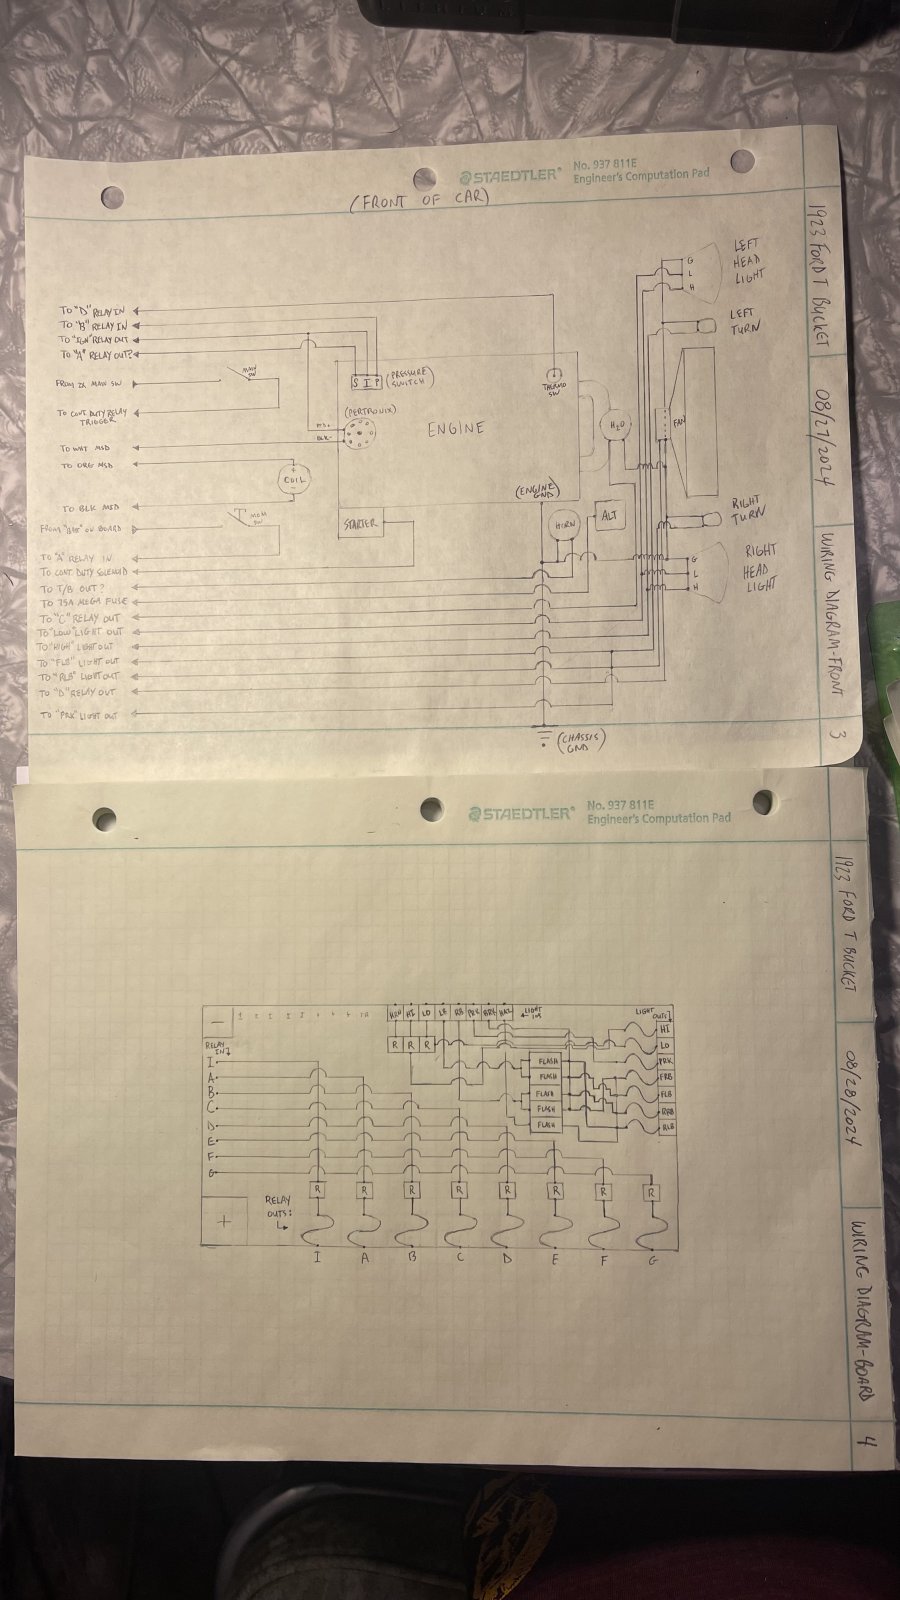 STAEDTLER® No. 937 811E
Engineer's Computation Pad
(FRONT OF CAR)
1923 FORD T BUCKET
08/27/2024
WIRING DIAGRAM-FRONT
3
TO "D" RELAY IN
TO "B" RELAY IN
TO "IGN" RELAY OUT
TO "A" RELAY OUT?
FROM 2X MAW SW
TO CONT. DUTY RELAY
TRIGGER
TO WHT MSD
TO ORG MSD
TO BLK MSD
ON BOARD
TO "A" RELAY IN
TO CONT. DUTY SOLENOID
TO T/B OUT?
TO 75A MEGA FUSE
TO "C" RELAY OUT
TO "LOW" LIGHT OUT
TO "HIGH" LIGHT OUT
TO "FLB" LIGHT OUT
TO "RLB" LIGHT OUT
TO "D" RELAY OUT
TO "PRK" LIGHT OUT
MAW
SW
MOM
SW
COIL
S I P
(PRESSURE
SWITCH)
(PERTRONIX)
RED+
BLK-
ENGINE
STARTER
THERMO
SW
H2O
FAN
(ENGINE
GND)
HORN
ALT
(CHASSIS
GND)
G
L
H
LEFT
HEAD
LIGHT
LEFT
TURN
RIGHT
TURN
G
L
H
RIGHT
HEAD
LIGHT
STAEDTLER® No. 937 811E
Engineer's Computation Pad
1923 FORD T BUCKET
08/28/2024
WIRING DIAGRAM-BOARD
4
-
HRN HI LO LE RE PRK BRK HAZ
LIGHT
INS
LIGHT
OUTS
R R R
RELAY
IN
I
A
B
C
D
E
F
G
FLASH
FLASH
FLASH
FLASH
FLASH
HI
LO
PRK
FRB
FLB
RRB
RLB
+
RELAY
OUTS:
R R R R R R R R
I A B C D E F G